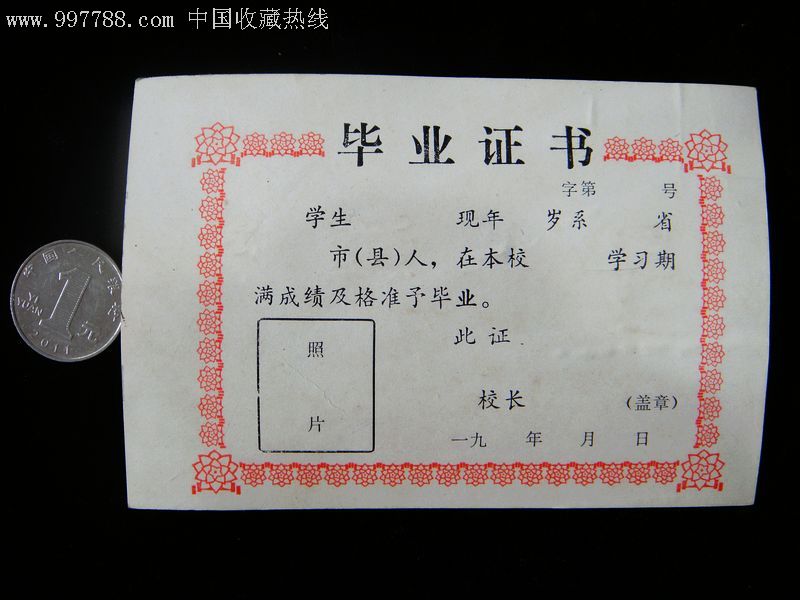 www.997788.com 中国收藏热线
毕业证书
字第 号
学生 现年 岁系 省
市(县)人，在本校 学习期
满成绩及格准予毕业。
此证
照
片
校长 (盖章)
一九 年 月 日
中国人民银行
1
YI YUAN
元
2011